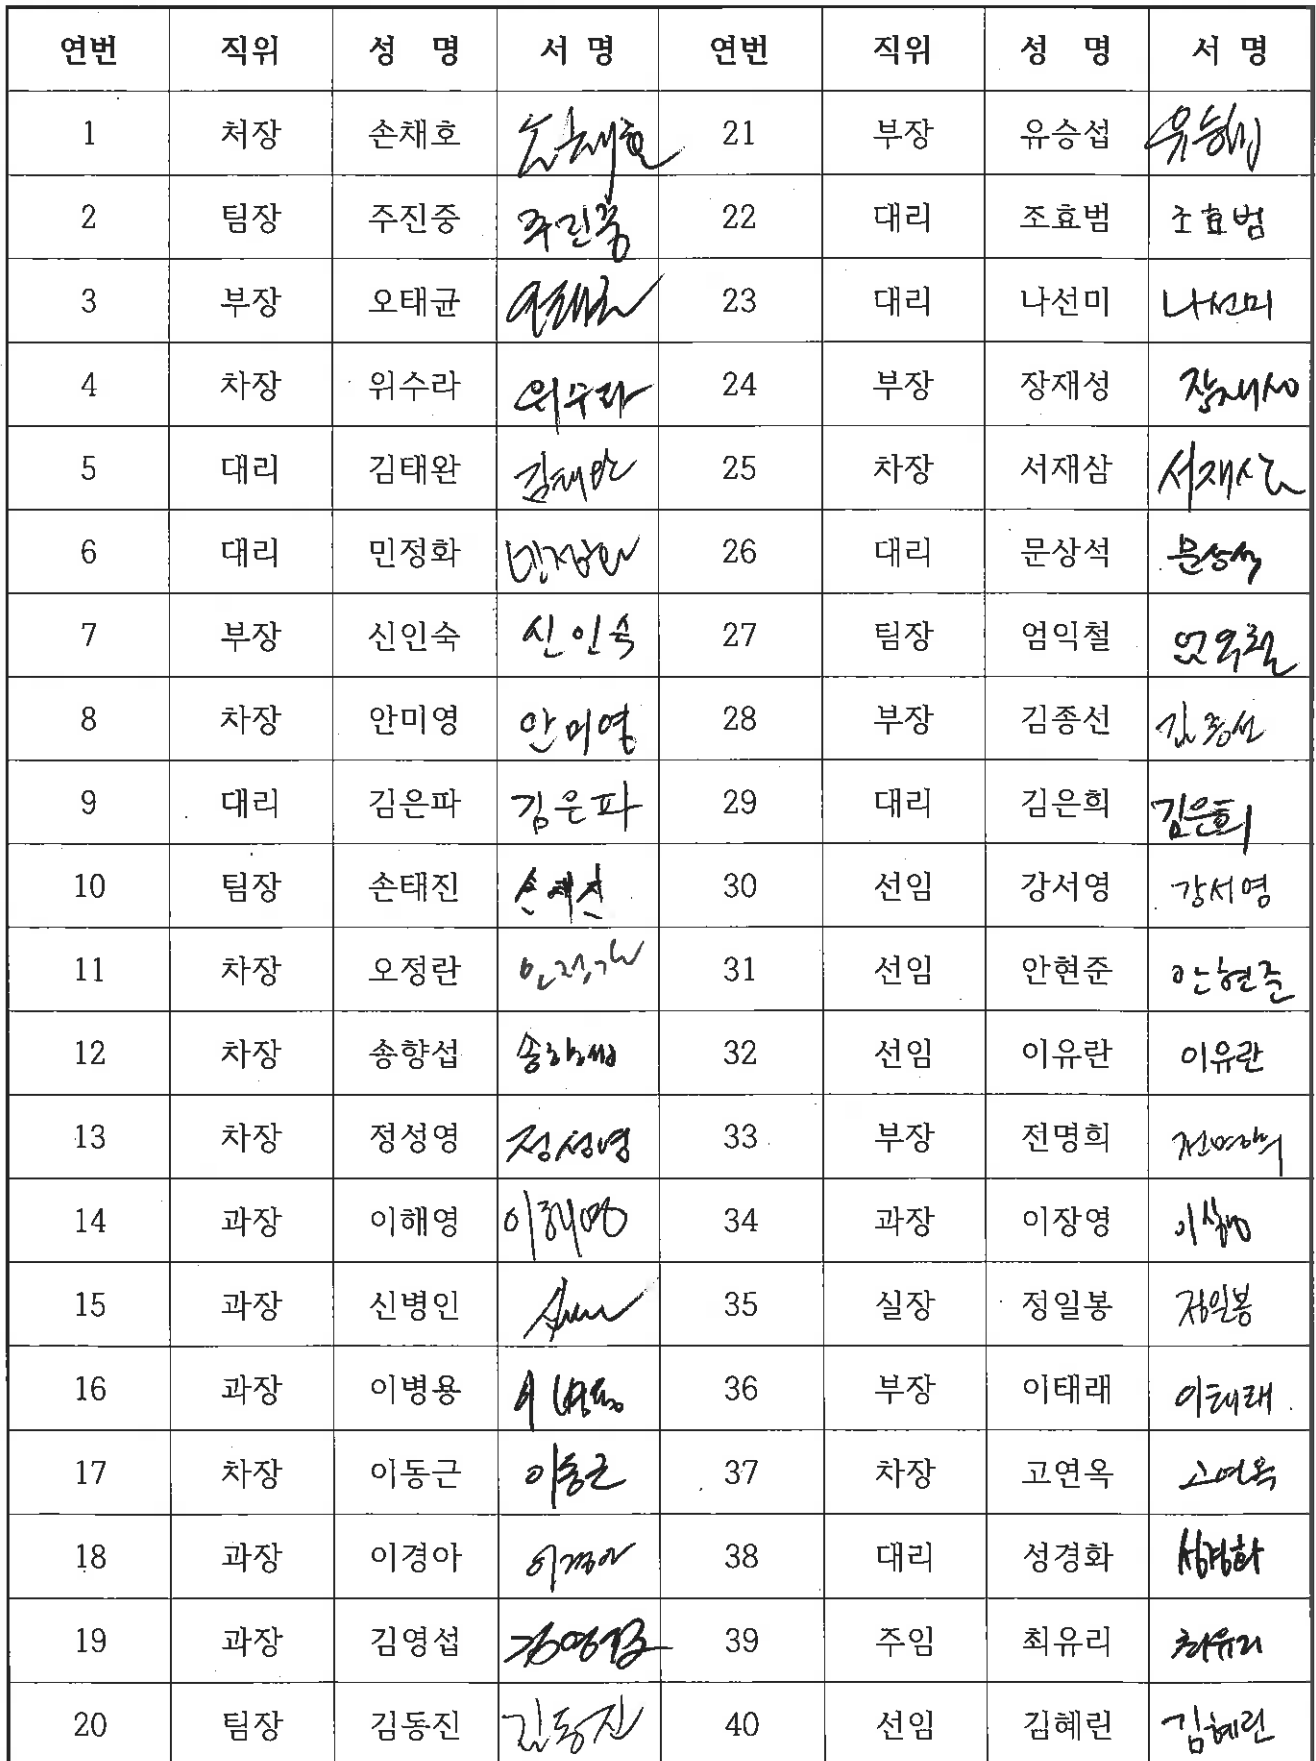 연번 직위 성 명 서 명 연번 직위 성 명 서 명
1 처장 손채호 손채호 21 부장 유승섭 유승섭
2 팀장 주진중 주진중 22 대리 조효범 조효범
3 부장 오태균 오태균 23 대리 나선미 나선미
4 차장 위수라 위수라 24 부장 장재성 장재성
5 대리 김태완 김태완 25 차장 서재삼 서재삼
6 대리 민정화 민정화 26 대리 문상석 문상석
7 부장 신인숙 신인숙 27 팀장 엄익철 엄익철
8 차장 안미영 안미영 28 부장 김종선 김종선
9 대리 김은파 김은파 29 대리 김은희 김은희
10 팀장 손태진 손태진 30 선임 강서영 강서영
11 차장 오정란 31 선임 안현준 안현준
12 차장 송향섭 송향섭 32 선임 이유란 이유란
13 차장 정성영 정성영 33 부장 전명희 전명희
14 과장 이해영 이해영 34 과장 이장영 이장영
15 과장 신병인 35 실장 정일봉 정일봉
16 과장 이병용 이병용 36 부장 이태래 이태래
17 차장 이동근 이동근 37 차장 고연옥 고연옥
18 과장 이경아 이경아 38 대리 성경화 성경화
19 과장 김영섭 김영섭 39 주임 최유리 최유리
20 팀장 김동진 김동진 40 선임 김혜린 김혜린